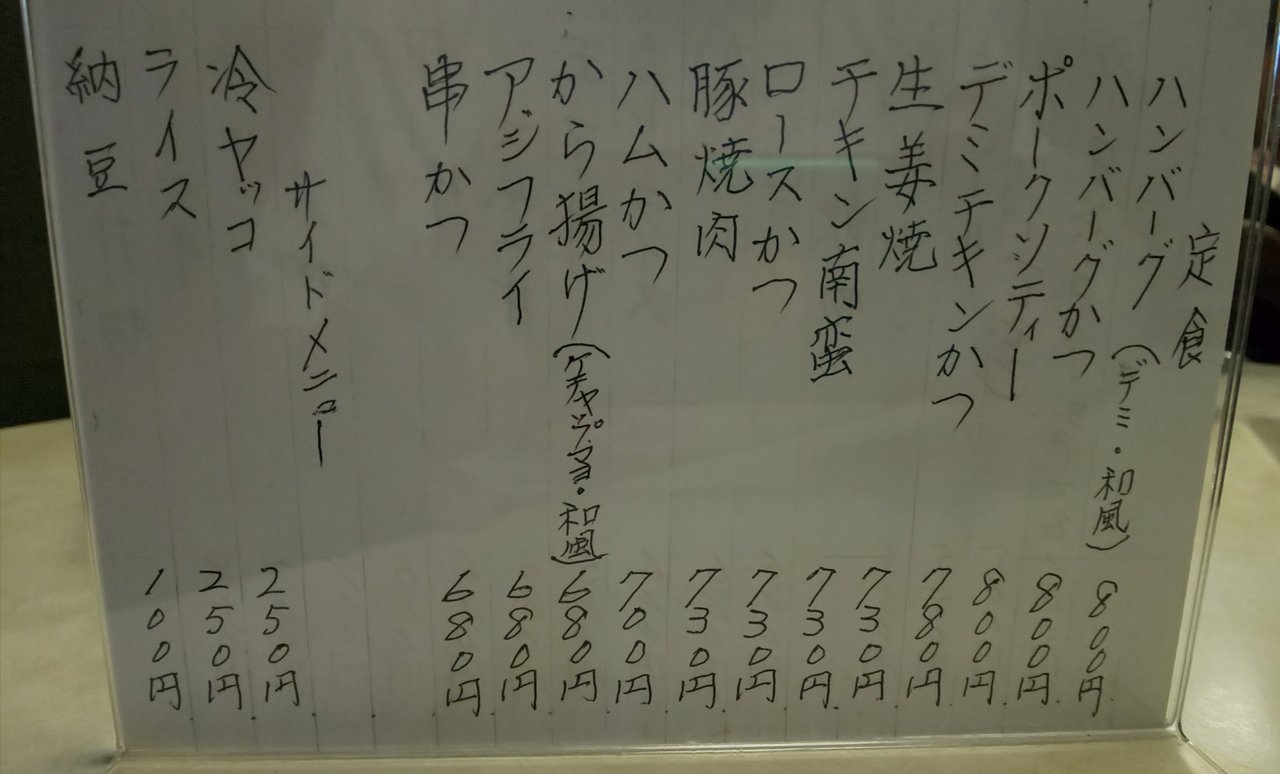 定食
ハンバーグ(デミ・和風) 800円
ハンバーグかつ 800円
ポークソティー 800円
デミチキンかつ 780円
生姜焼 730円
チキン南蛮 730円
ロースかつ 730円
豚焼肉 730円
ハムかつ 700円
から揚げ(ケチャップ・マヨ・和風) 680円
アジフライ 680円
串かつ 680円
サイドメニュー
冷ヤッコ 250円
ライス 250円
納豆 100円